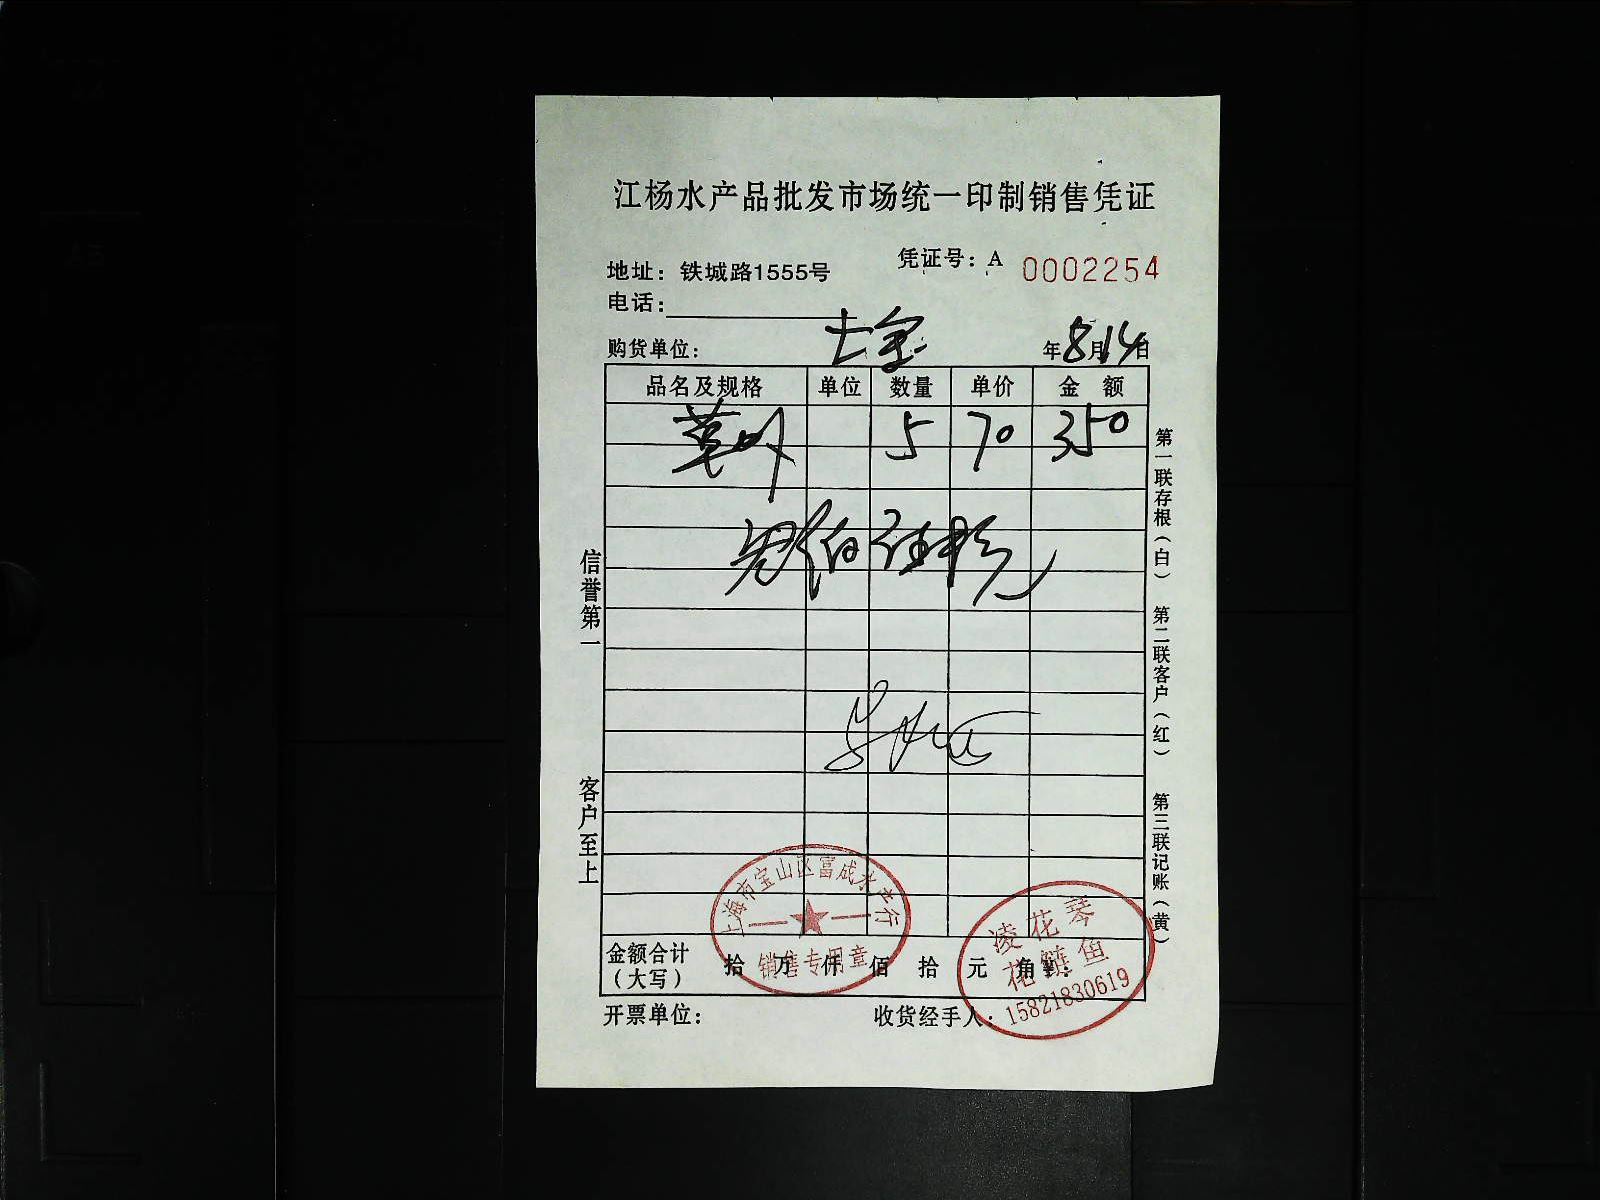 江杨水产品批发市场统一印制销售凭证
地址：铁城路1555号
凭证号：A 0002254
电话：
购货单位：
年8月14日
品名及规格 单位 数量 单价 金 额
5 70 350
信誉第一
客户至上
第一联存根（白） 第二联客户（红） 第三联记账（黄）
上海市宝山区富成水产行
销售专用章
凌花琴
花鲢鱼
15821830619
金额合计
（大写）
拾 万 仟 佰 拾 元 角
开票单位：
收货经手人：